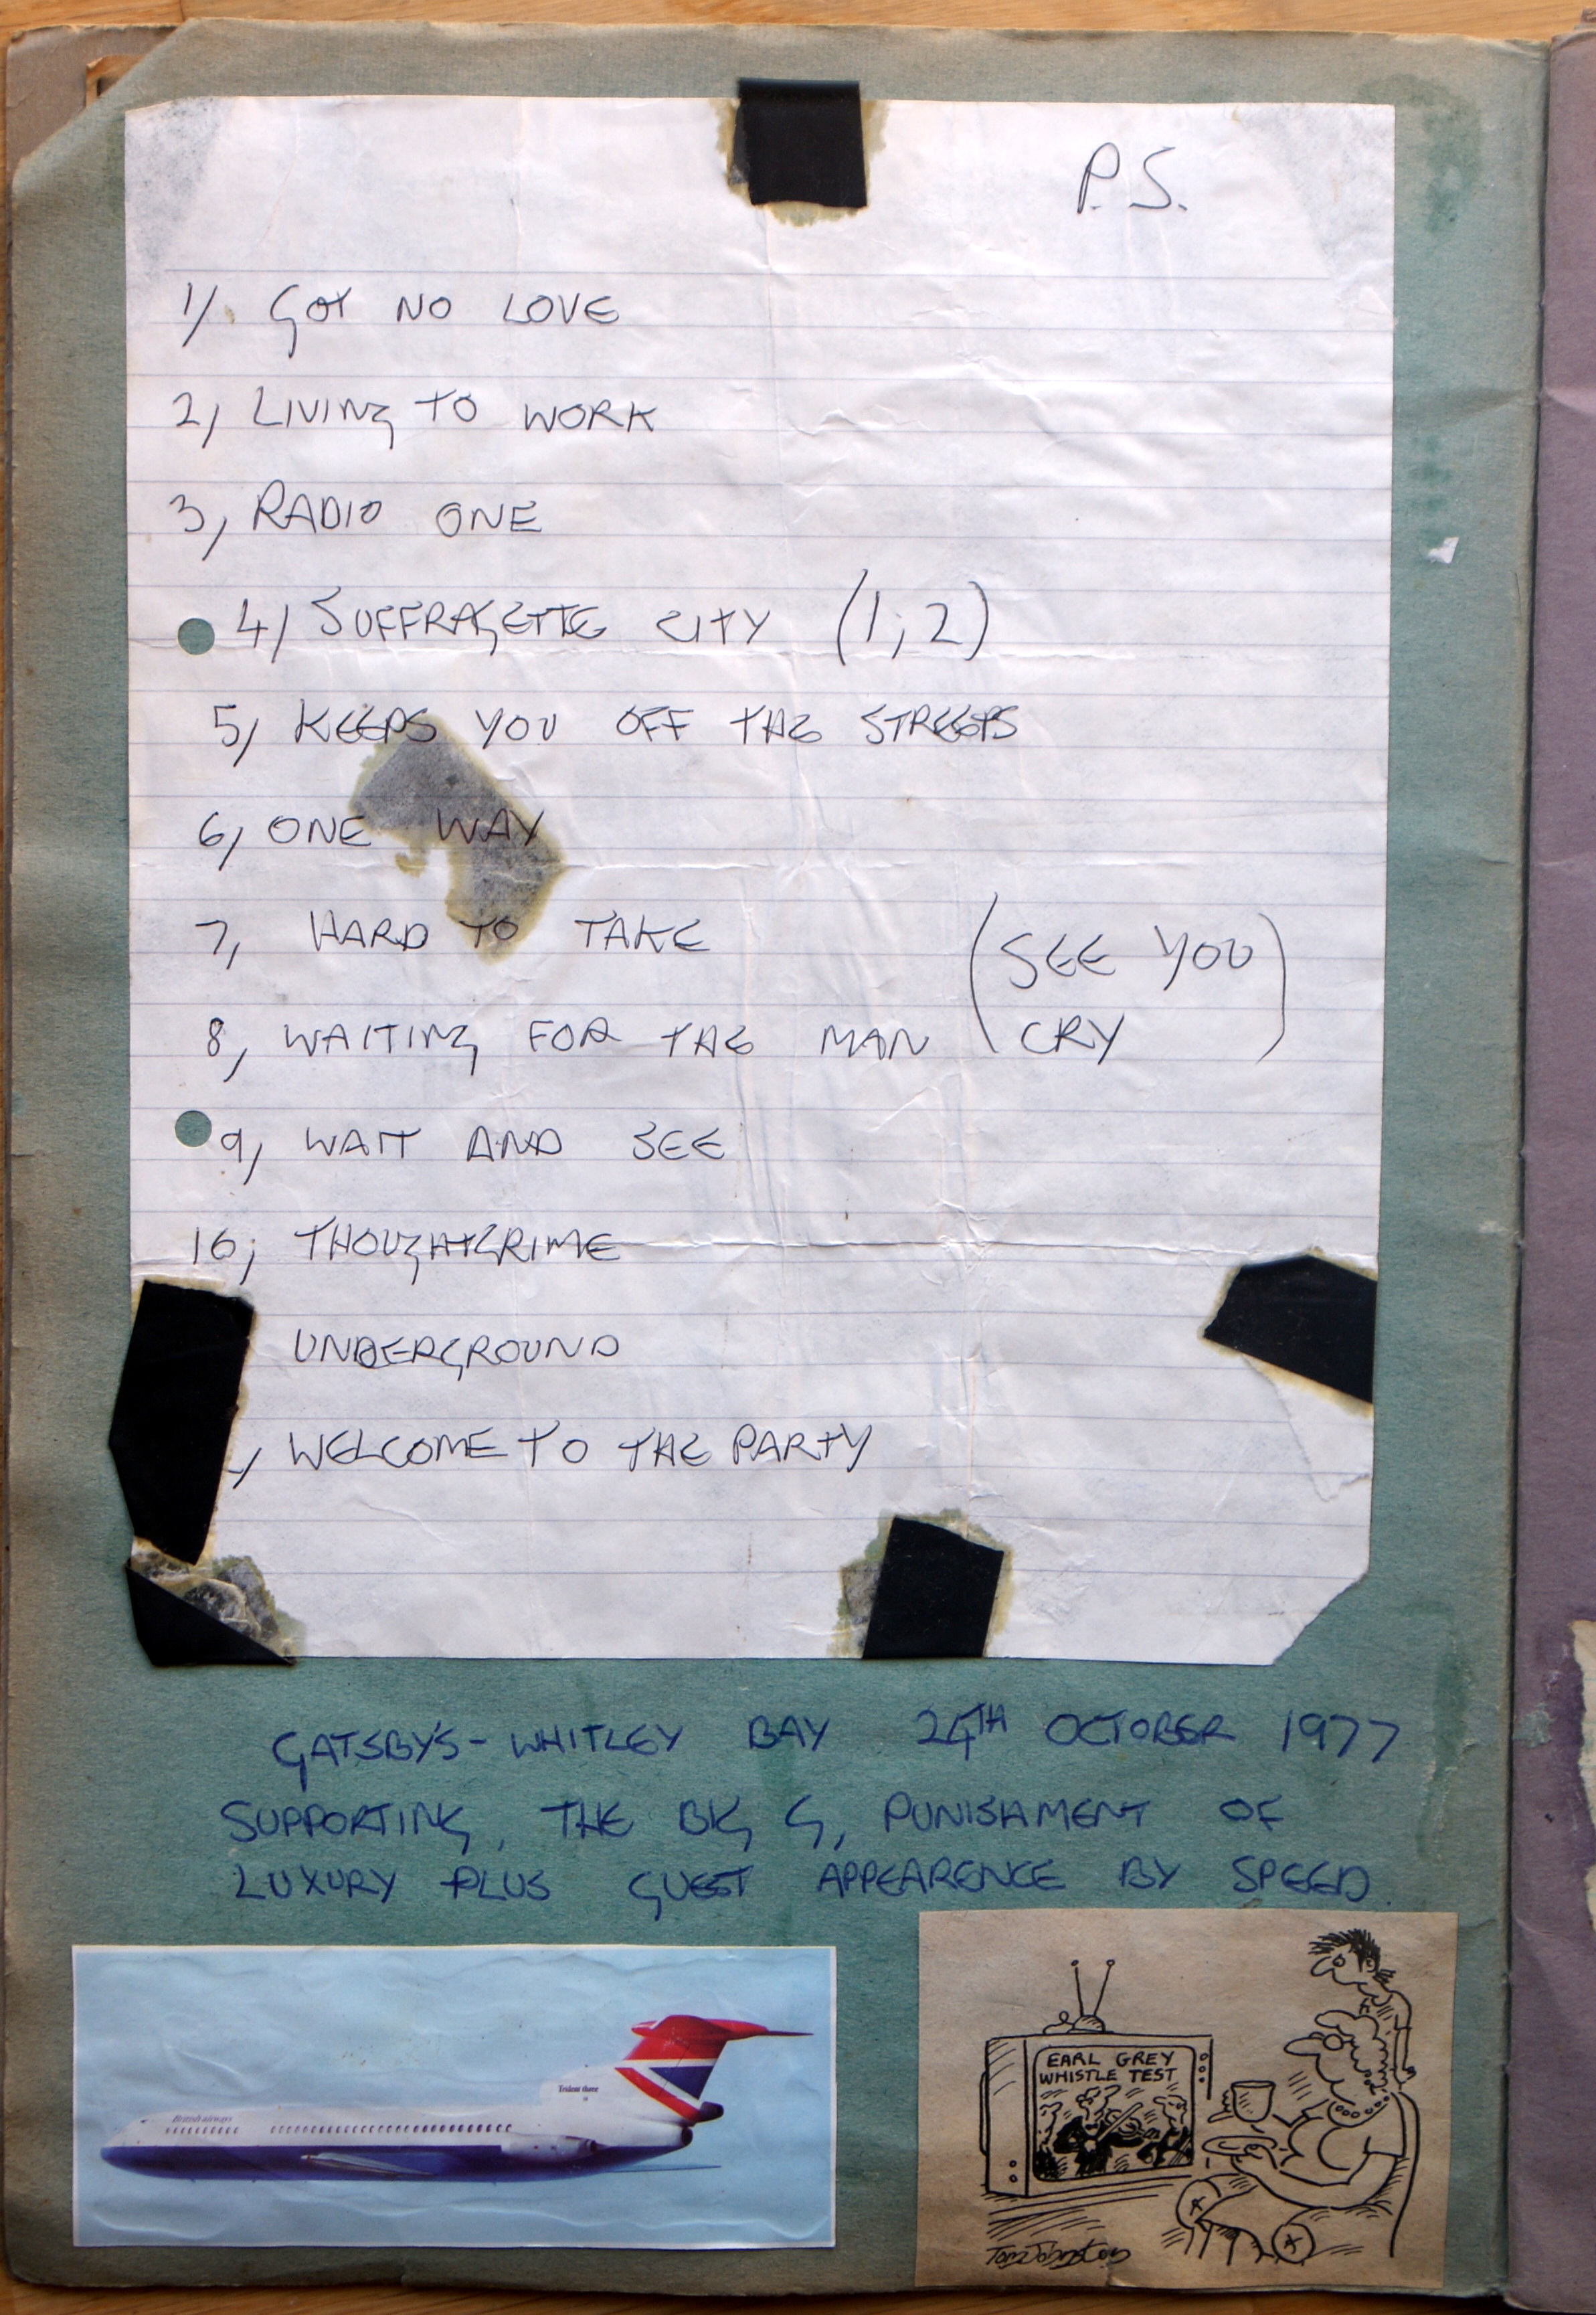 P.S.
1/. GOT NO LOVE
2, LIVING TO WORK
3, RADIO ONE
4/ SUFFRAGETTE CITY (1,2)
5, KEEPS YOU OFF THE STREETS
6, ONE WAY
7, HARD TO TAKE (SEE YOU
8, WAITING FOR THE MAN CRY)
9, WAIT AND SEE
10, THOUGHTCRIME
UNDERGROUND
, WELCOME TO THE PARTY
GATSBY'S - WHITLEY BAY 24TH OCTOBER 1977
SUPPORTING, THE BIG G, PUNISHMENT OF
LUXURY PLUS GUEST APPEARENCE BY SPEED.
Trident three
British airways
EARL GREY
WHISTLE TEST
Tom Johnston